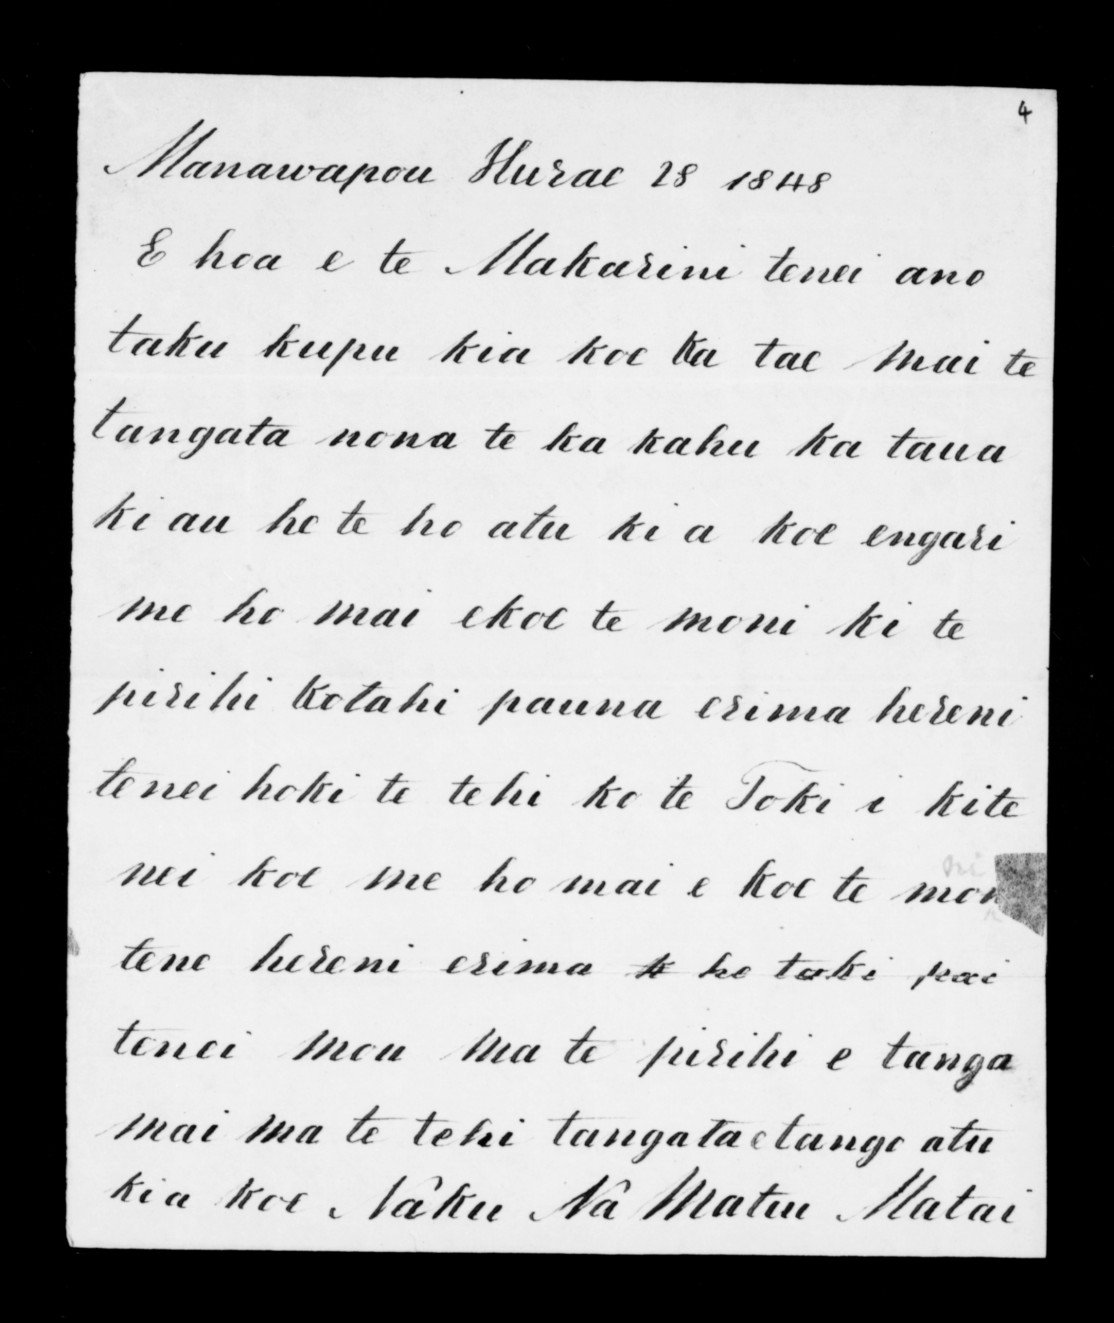 4
Manawapou Hurae 28 1848
E hoa e te Makarini tenei ano
taku kupu kia koe ka tae mai te
tangata nona te ka kahu ka taua
ki au he te ho atu ki a koe engari
me ho mai ekoe te moni ki te
pirihi kotahi pauna erima hereni
tenei hoki te tehi ko te Toki i kite
nei koe me ho mai e koe te mon
tene hereni erima he toki pai
tenei mou ma te pirihi e tanga
mai ma te tehi tangata e tango atu
kia koe Nâku Nâ Matiu Matai